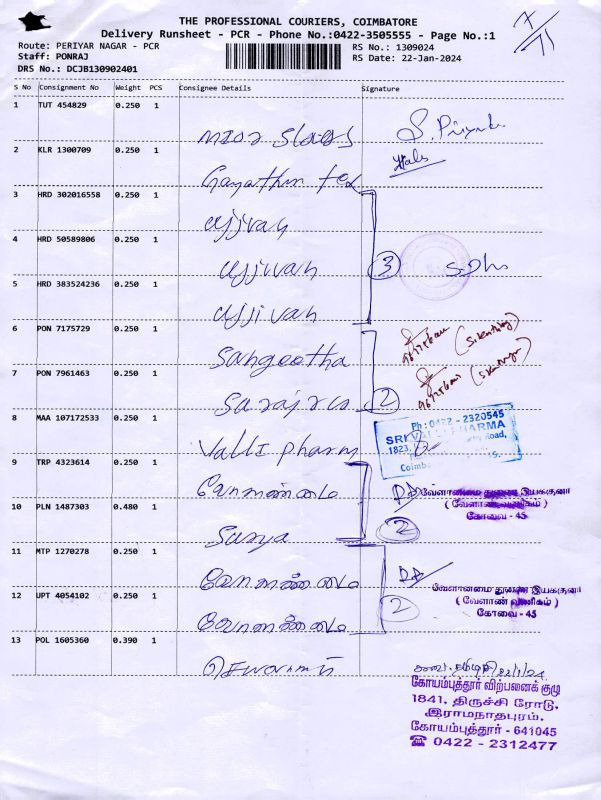 THE PROFESSIONAL COURIERS, COIMBATORE
Delivery Runsheet - PCR - Phone No.:0422-3505555 - Page No.:1
Route: PERIYAR NAGAR - PCR
RS No.: 1309024
Staff: PONRAJ
RS Date: 22-Jan-2024
DRS No.: DCJB130902401
S No Consignment No Weight PCS Consignee Details Signature
1 TUT 454829 0.250 1
S. Priya
2 KLR 1300709 0.250 1
Gayathiri Tex
3 HRD 302016558 0.250 1
ujjivan
4 HRD 50589806 0.250 1
ujjivan
3
5 HRD 383524236 0.250 1
ujjivan
6 PON 7175729 0.250 1
Sangeetha
7 PON 7961463 0.250 1
2
8 MAA 107172533 0.250 1
Valli pharm
Ph : 0422 - 2320545
SRI VALLI PHARMA
1823,
Road,
Coimb
9 TRP 4323614 0.250 1
வேளாண்மை
வேளாண்மை துணை இயக்குனர்
( வேளாண் வணிகம் )
கோவை - 45
10 PLN 1487303 0.480 1
Surya
2
11 MTP 1270278 0.250 1
வேளாண்மை
வேளாண்மை துணை இயக்குனர்
( வேளாண் வணிகம் )
கோவை - 45
12 UPT 4054102 0.250 1
வேளாண்மை
2
13 POL 1605360 0.390 1
22/1/24
கோயம்புத்தூர் விற்பனைக் குழு
1841, திருச்சி ரோடு,
இராமநாதபுரம்,
கோயம்புத்தூர் - 641045
☎ 0422 - 2312477